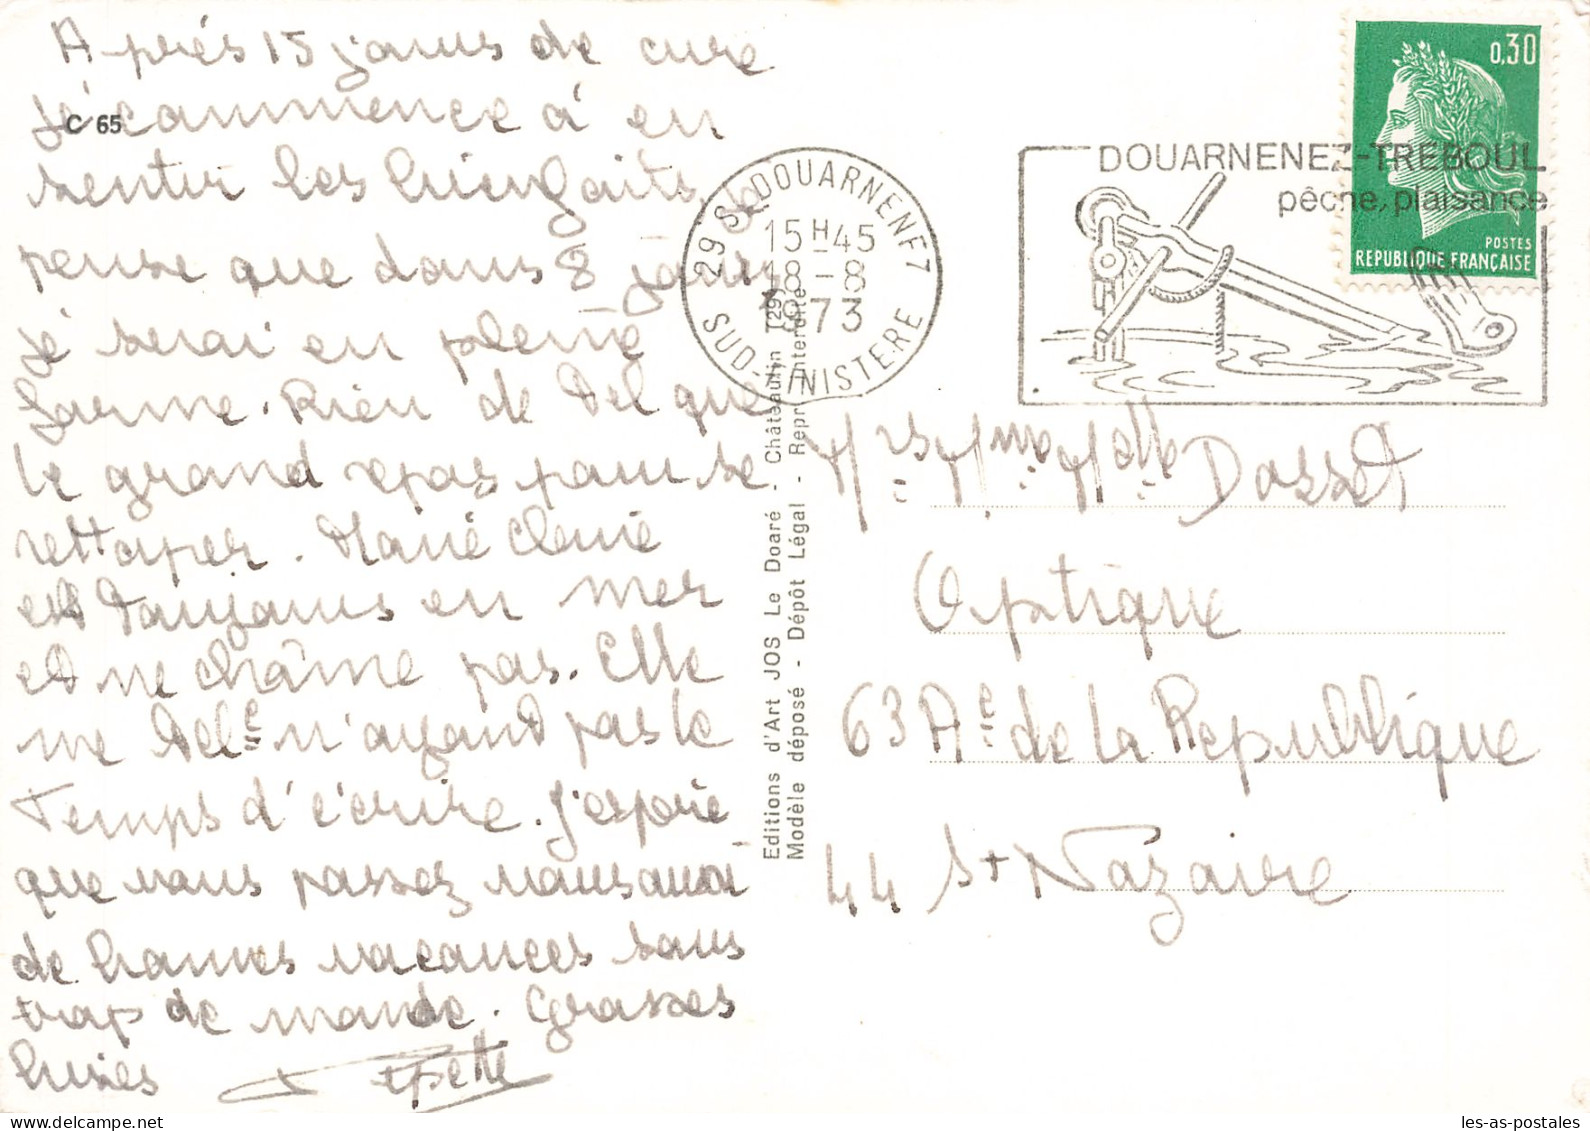 Après 15 jours de cure
je commence à en
C 65
sentir les bienfaits, je
pense que dans 8 jours
je serai en pleine
forme. Rien de tel que
le grand repos pour se
rettaper. Marie Claire
est toujours en mer
et ne chôme pas. Elle
me tel.e n'ayant pas le
temps d'écrire. J'espère
que vous passez vous aussi
de bonnes vacances sans
trop de monde. Grosses
bises Pépette
Editions d'Art JOS Le Doaré - Châteaulin (29)
Modèle déposé - Dépôt Légal - Repr. interdite
29 S DOUARNENEZ
15 H 45
18 - 8
1973
SUD-FINISTERE
DOUARNENEZ-TREBOUL
pêche, plaisance
0,30
POSTES
REPUBLIQUE FRANÇAISE
Mrs Mme Melle Dosset
Optique
63 Ae de la République
44 St Nazaire
les-as-postales